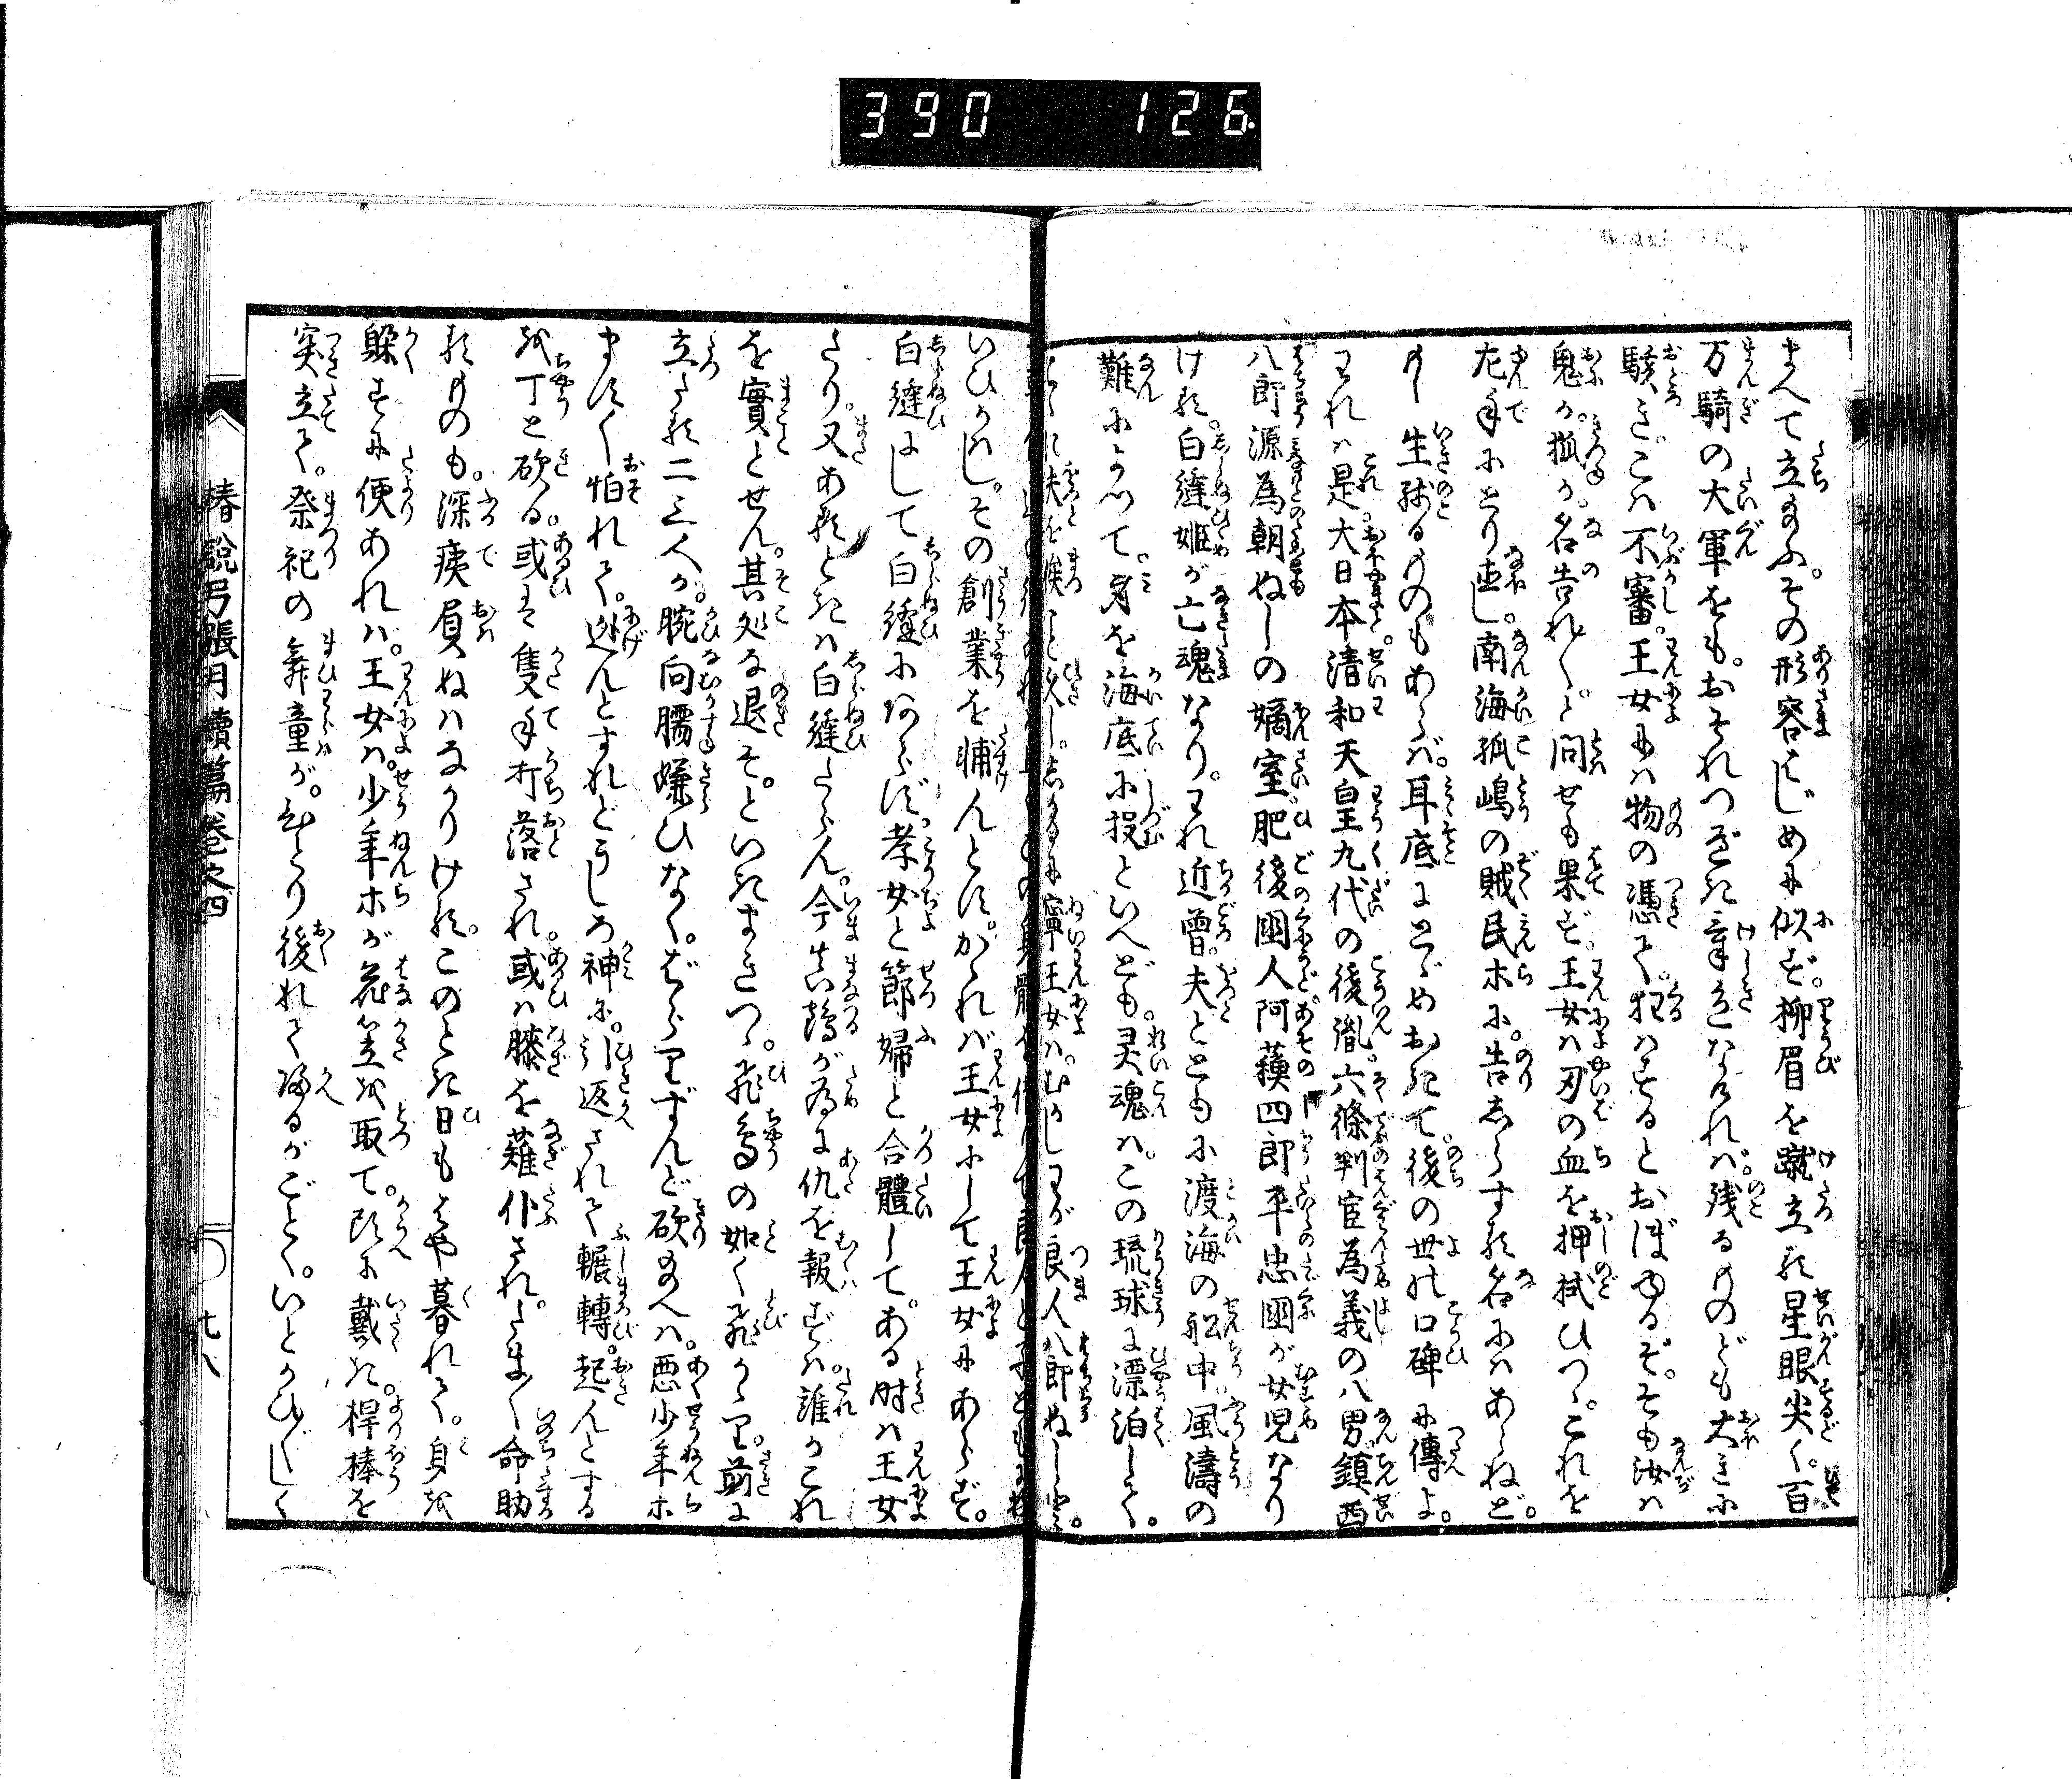 390 126
まへて立給ふ。その形容はじめに似ず。柳眉を蹴立る星眼尖く。百
万騎の大軍をも。おそれつべき章色なれば。残るものども大きに
駭き。こは不審。王女には物の憑て。狂はするとおぼゆるぞ。そも汝は
鬼か。狐か。名告れ〳〵と問せも果ず。王女は刃の血を押拭ひつゝ。これを
左手にとり直し。南海孤嶋の賊民ホに。告しらする名にはあらねど。
もし生殘るものもあらば。耳底にとゞめおきて。後の世の口碑に傳よ。
われは是大日本清和天皇九代の後胤。六條判官為義の八男。鎮西
八郎源為朝ぬしの嫡室。肥後國人阿蘓四郎平忠國が女児なり
ける。白縫姫が亡魂なり。われ近曽。夫とともに渡海の舩中。風濤の
難によつて。身を海底に投といへども。灵魂は。この琉球に漂泊して。
夫を俟こと久し。しかるに寧王女は。むかしわが良人八郎ぬしと。
いひかはし。その創業を輔んとす。かゝれば王女にして王女にあらず。
白縫にして白縫にあらず。孝女と節婦と合體して。ある时は王女
たり。又あるときは白縫たらん。今真鶴が為に仇を報ずは。誰かこれ
を實とせん。其処な退そ。といきまきつゝ。飛鳥の如く飛かゝり。前に
立たる二三人が。腕向臑嫌ひなく。ばらりずんど砍給へば。悪少年ホ
ます〳〵怕れて。迯んとすれどうしろ神に。引返されて輾轉。起んとする
を丁と砍る。或は隻手打落され。或は膝を薙仆され。たま〳〵命助
るものも。深痍肩ぬはなかりけり。このとき日もはや暮れて。身を
躱すに便あれば。王女は。少年ホが花笠を取て。頭に戴き。桿棒を
突立て。祭祀の舞童が。ひとり後れて帰るがごとく。いとかひ〴〵しく
椿説弓張月續篇卷之四
七八